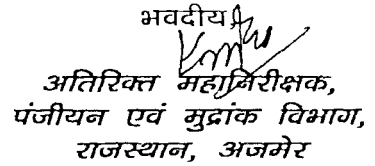 भवदीय
अतिरिक्त महानिरीक्षक,
पंजीयन एवं मुद्रांक विभाग,
राजस्थान, अजमेर